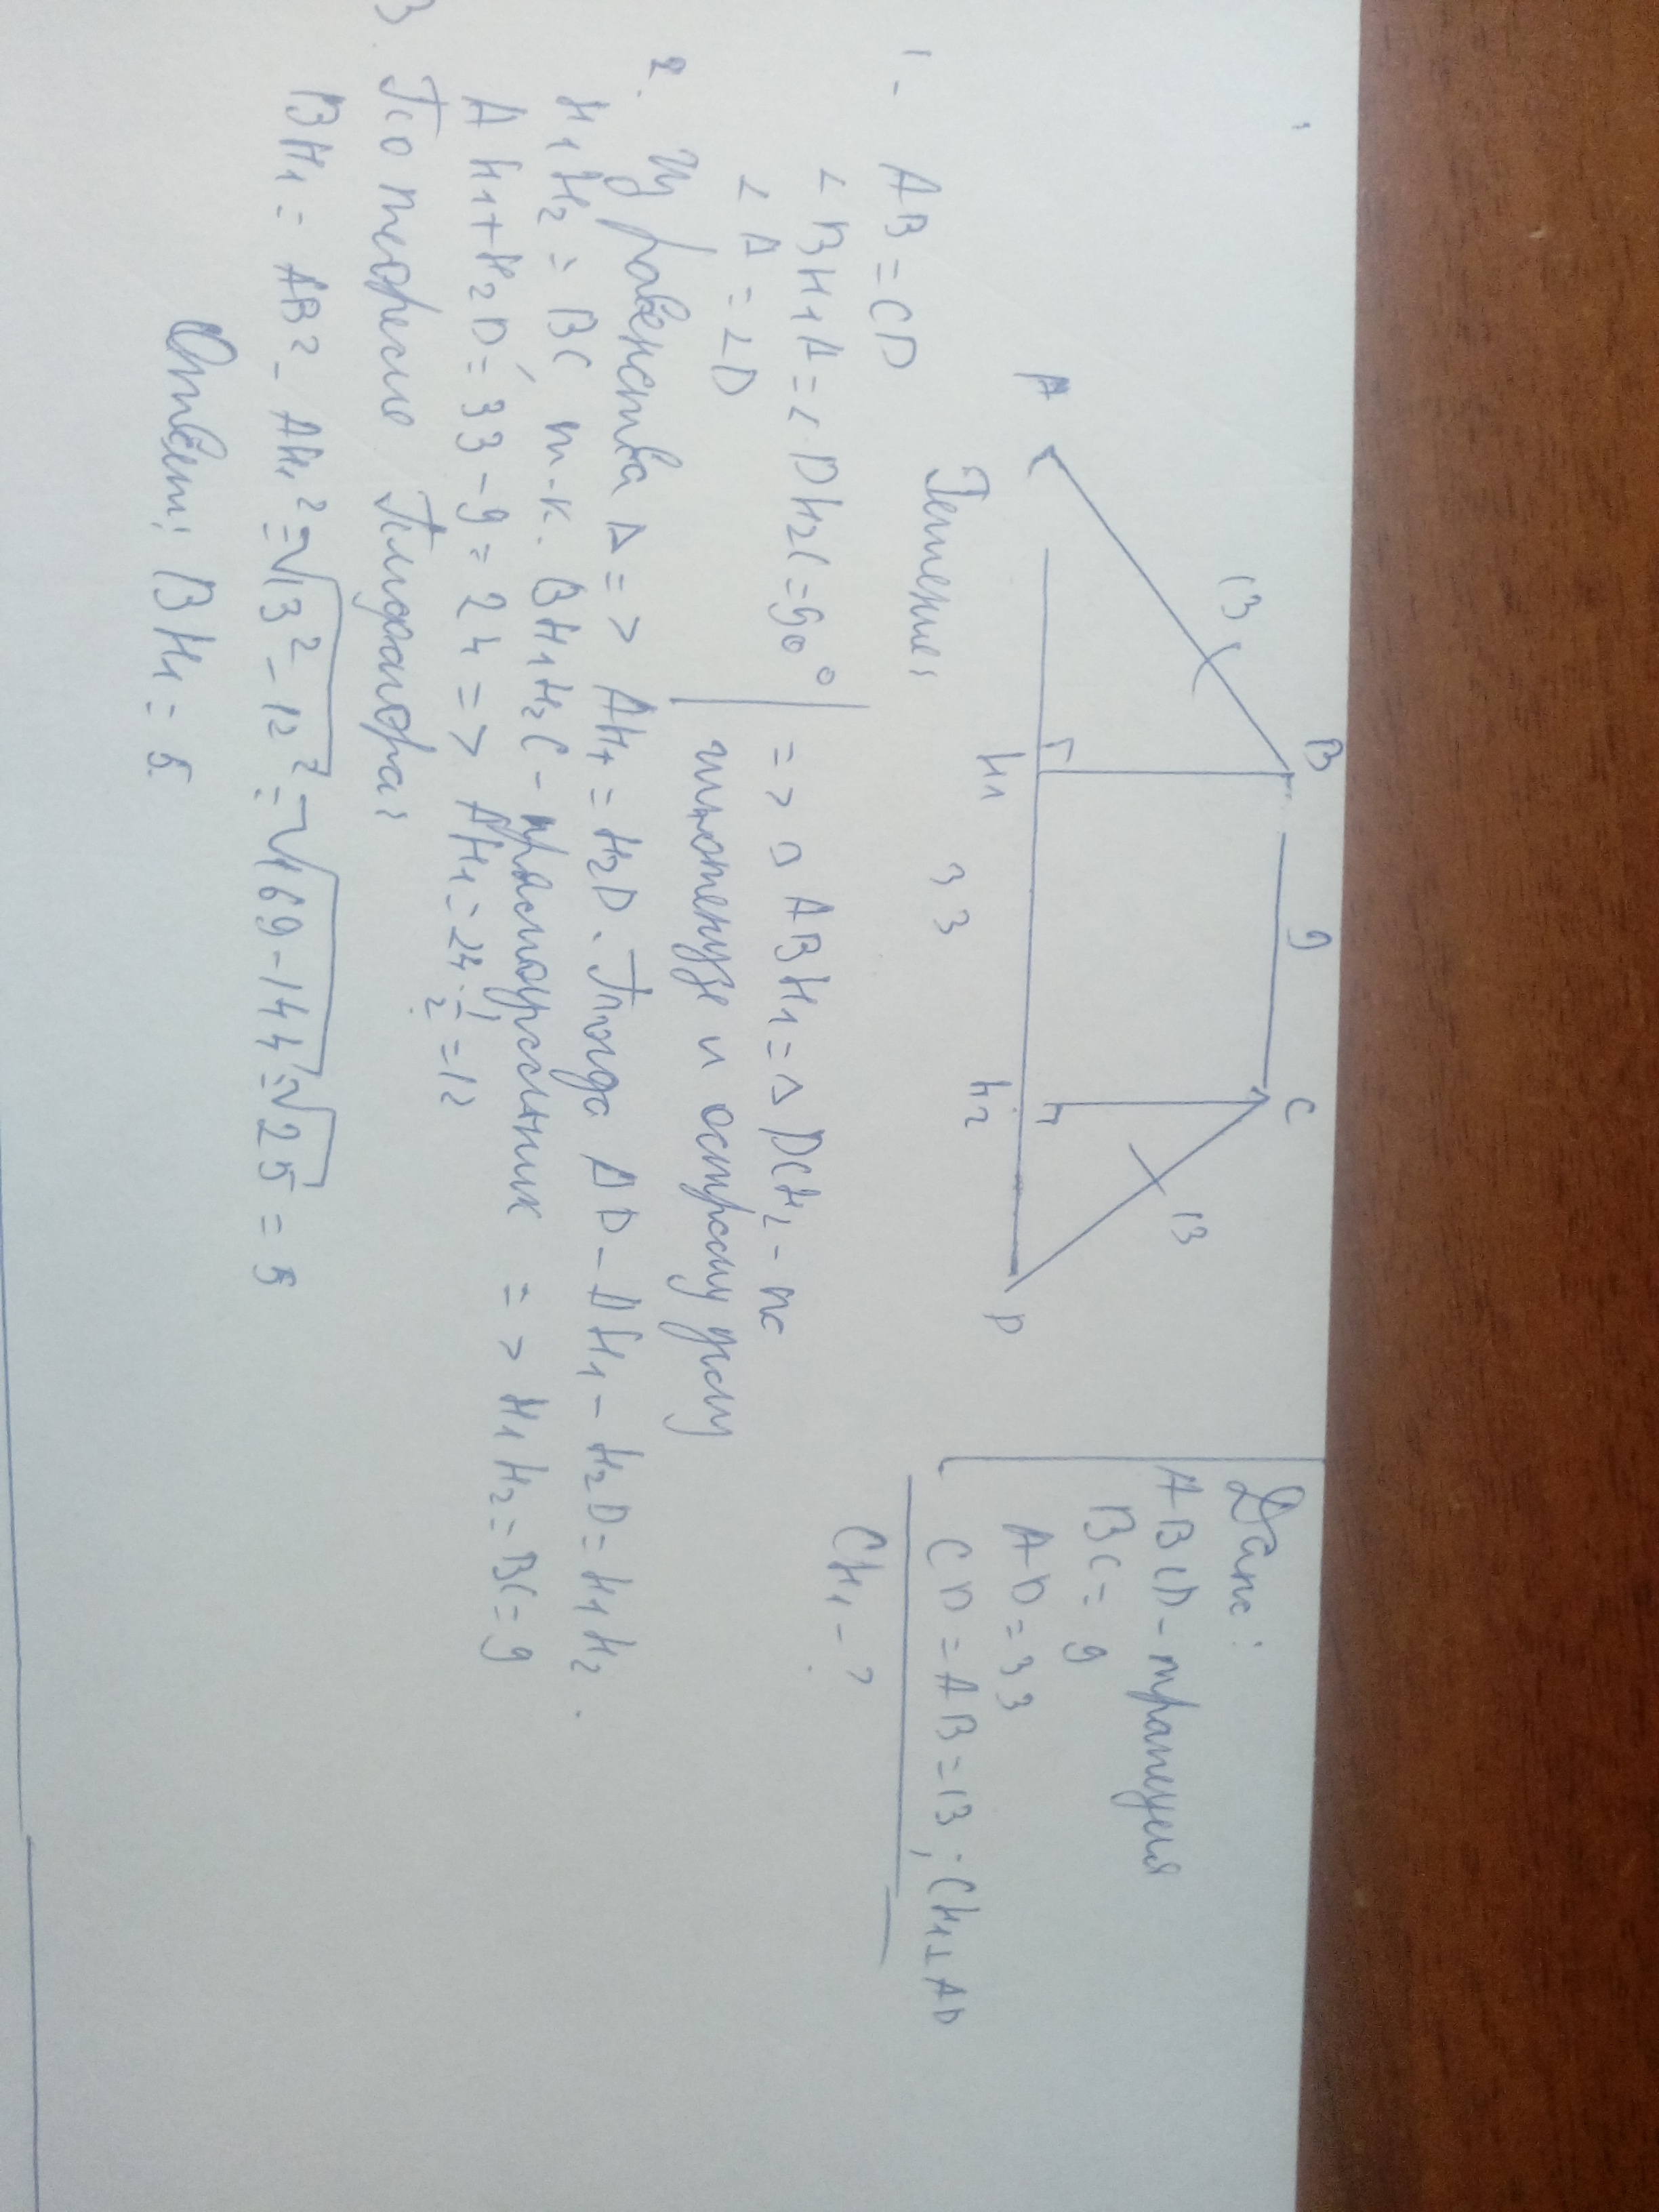 B 9 C
13 13
A H1 h2 D
33
Дано:
ABCD - трапеция
BC = 9
AD = 33
CD = AB = 13; CH1 ⊥ AD
CH1 - ?
Решение:
1. AB = CD
∠BH1A = ∠DH2C = 90°
∠A = ∠D
=> △ABH1 = △DCH2 - по
гипотенузе и острому углу
2. Из равенства △ => AH1 = H2D. Тогда AD - AH1 - H2D = H1H2.
H1H2 = BC т.к. BH1H2C - прямоугольник => H1H2 = BC = 9
AH1 + H2D = 33 - 9 = 24 => AH1 = 24 · 1/2 = 12
3. По теореме Пифагора:
BH1 = AB² - AH1² = √13² - 12² = √169 - 144 = √25 = 5
Ответ: BH1 = 5.